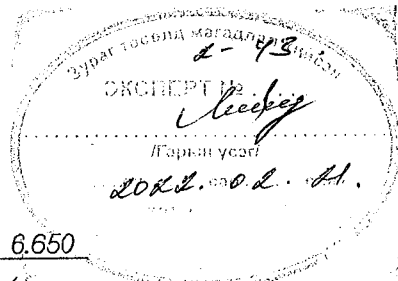 Зураг төсөлд магадлал хийсэн
2-43
ЭКСПЕРТ №
/Гарын үсэг/
2022.02.21.
6.650